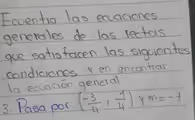 Ecuentra las ecuaciones
generales de las rectas
que satisfacen las siguientes
condiciones y en encontrar
la ecuación general
3. Pasa por (-3/4, 1/4) y m = -1